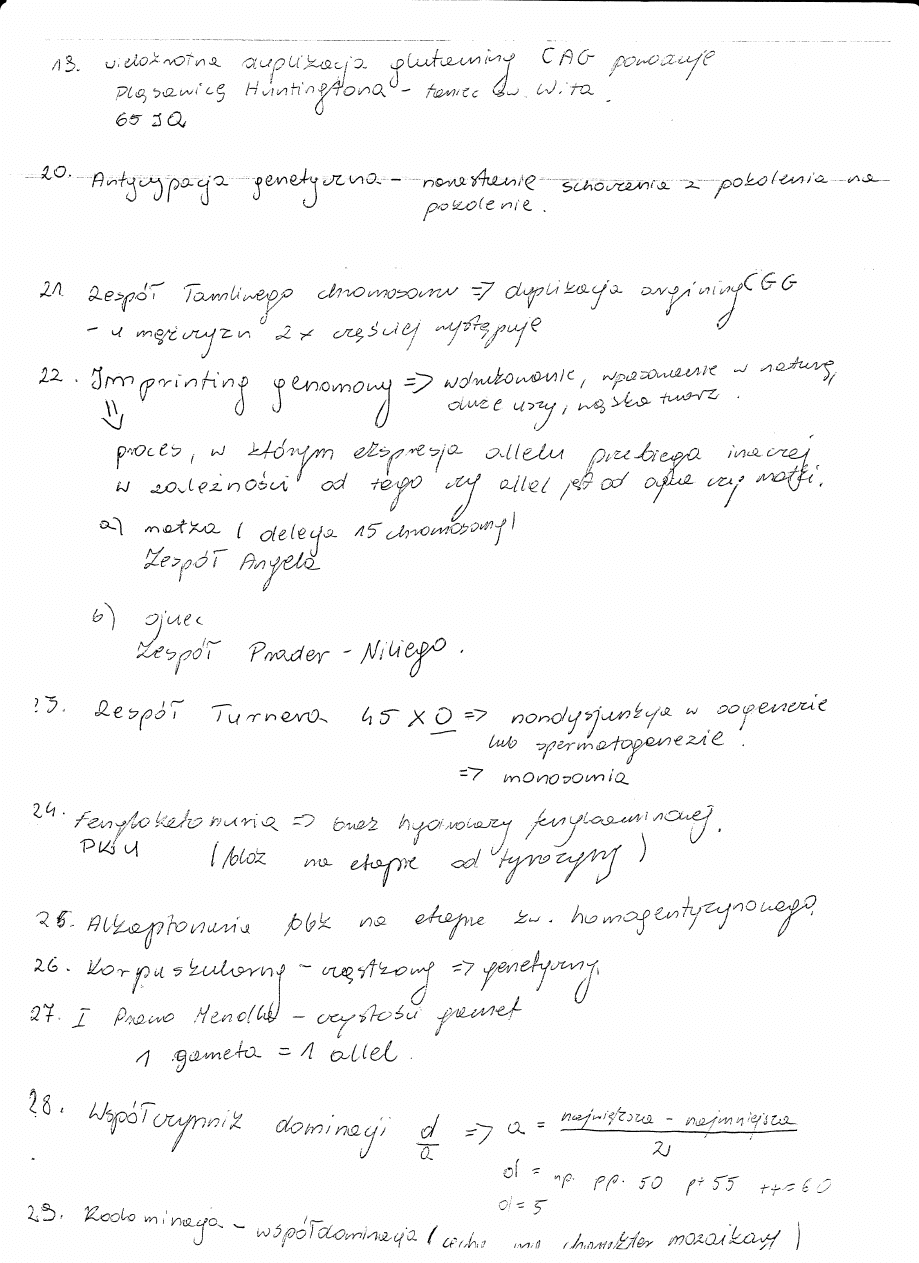 19. wielokrotna duplikacja glutaminy CAG powoduje
Pląsawicę Huntingtona - taniec św. Wita.
65 IQ
20. Antycypacja genetyczna - narastanie schorzenia z pokolenia na
pokolenie.
21 Zespół Łamliwego chromosomu => duplikacja argininy CGG
- u mężczyzn 2x częściej występuje
22. Imprinting genomowy => wdrukowanie, wpasowanie w naturę,
duże uszy, wąska twarz.
proces, w którym ekspresja allelu przebiega inaczej
w zależności od tego czy allel jest od ojca czy matki.
a) matka (delecja 15 chromosomy)
Zespół Angela
b) ojciec
Zespół Prader - Niliego.
23. Zespół Turnera 45 X O => nondysjunkcja w oogenezie
lub spermatogenezie.
=> monosomia
24. Fenyloketonuria => brak hydrolazy fenyloaminowej.
PKU (blok na etapie od tyrozyny)
25. Alkaptonuria blok na etapie kw. homogentyzynowego.
26. Korpuskularny - cząstkowy => genetyczny.
27. I Prawo Mendla - czystości gamet
1 gameta = 1 allel.
28. Współczynnik dominacji d/a => a = największa - najmniejsza / 2
d = np. pp. 50 p+ 55 ++=60
d = 5
29. Kodominacja - współdominacja (cecha ma charakter mozaikowy)